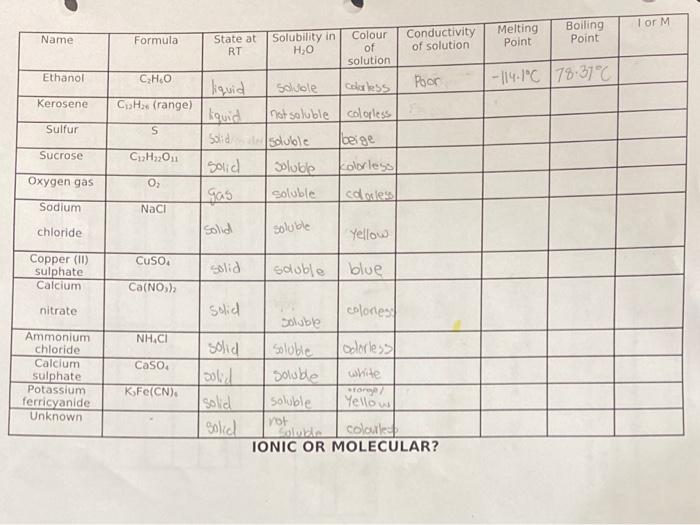 Name Formula State at RT Solubility in H₂O Colour of solution Conductivity of solution Melting Point Boiling Point I or M
Ethanol C₂H₆O liquid soluble colorless Poor -114.1°C 78.37°C
Kerosene C₁₂H₂₆ (range) liquid not soluble colorless
Sulfur S solid soluble beige
Sucrose C₁₂H₂₂O₁₁ solid soluble colorless
Oxygen gas O₂ gas soluble colorless
Sodium chloride NaCl solid soluble yellow
Copper (II) sulphate CuSO₄ solid soluble blue
Calcium nitrate Ca(NO₃)₂ solid soluble colorless
Ammonium chloride NH₄Cl solid soluble colorless
Calcium sulphate CaSO₄ solid soluble white
Potassium ferricyanide K₃Fe(CN)₆ solid soluble orange/ Yellow
Unknown - solid not soluble colourless
IONIC OR MOLECULAR?